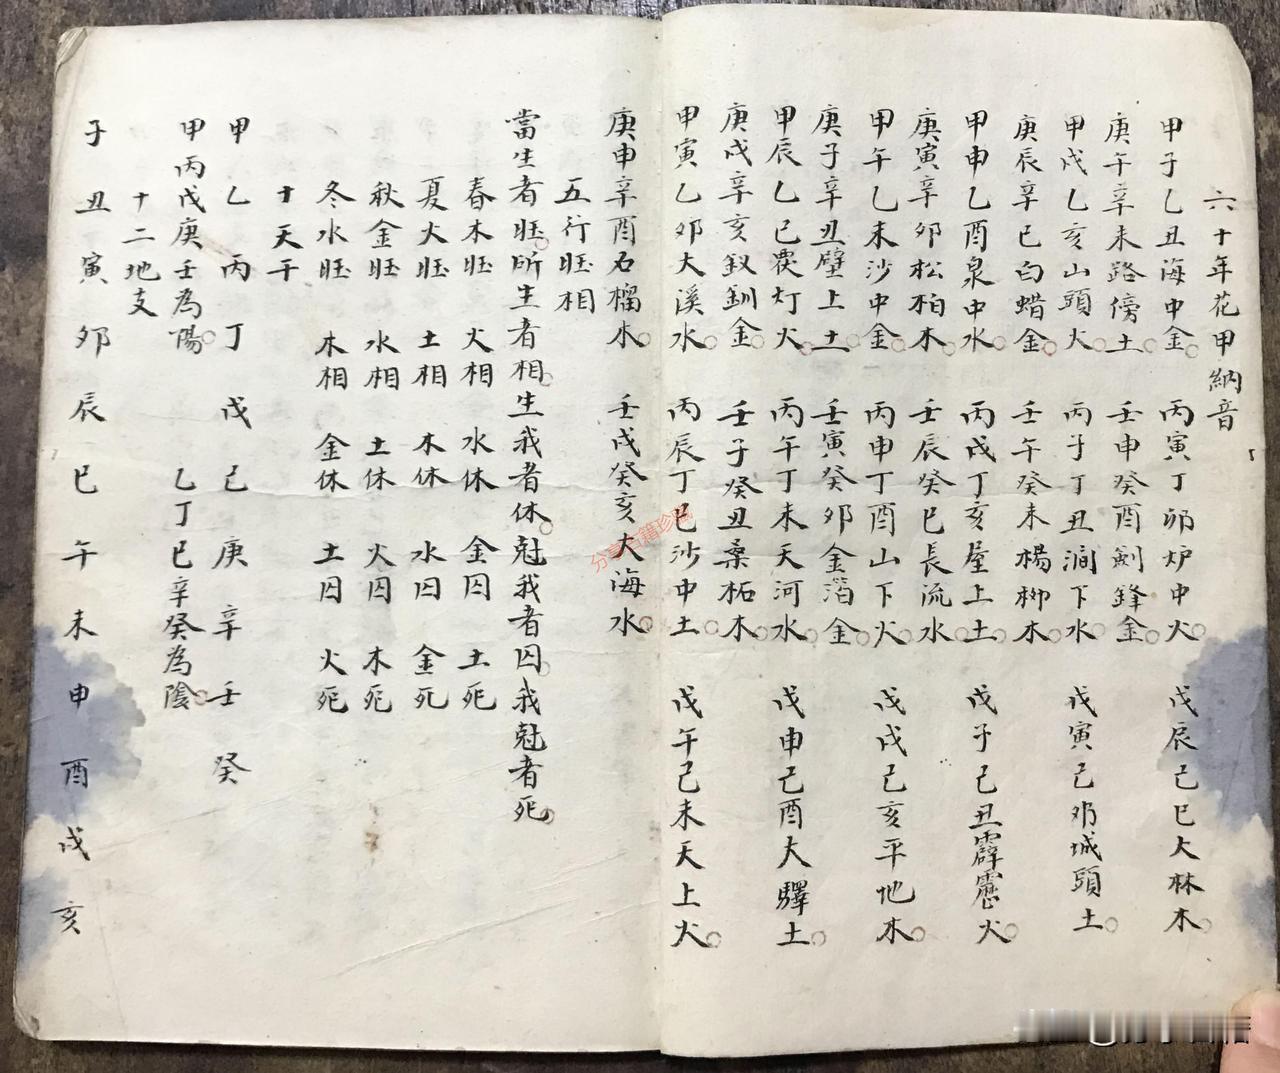 六十年花甲納音
甲子乙丑海中金 丙寅丁卯炉中火 戊辰己巳大林木
庚午辛未路傍土 壬申癸酉劍鋒金
甲戌乙亥山頭火 丙子丁丑澗下水 戊寅己卯城頭土
庚辰辛巳白蜡金 壬午癸未楊柳木
甲申乙酉泉中水 丙戌丁亥屋上土 戊子己丑霹靂火
庚寅辛卯松柏木 壬辰癸巳長流水
甲午乙未沙中金 丙申丁酉山下火 戊戌己亥平地木
庚子辛丑壁上土 壬寅癸卯金箔金
甲辰乙巳灯火 丙午丁未天河水 戊申己酉大驛土
庚戌辛亥釵釧金 壬子癸丑桑柘木
甲寅乙卯大溪水 丙辰丁巳沙中土 戊午己未天上火
庚申辛酉石榴木 壬戌癸亥大海水
五行旺相
當生者旺所生者相生我者休尅我者囚我尅者死
春木旺 火相 水休 金囚 土死
夏火旺 土相 木休 水囚 金死
秋金旺 水相 土休 火囚 木死
冬水旺 木相 金休 土囚 火死
十天干
甲乙丙丁戊己庚辛壬癸
甲丙戊庚壬為陽 乙丁己辛癸為陰
十二地支
子丑寅卯辰巳午未申酉戌亥